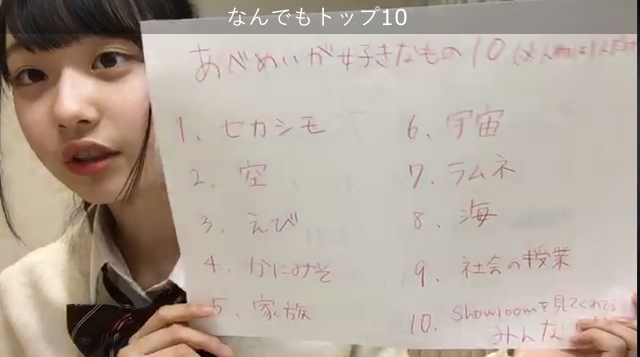 なんでもトップ10
あべめいが好きなもの10
1、セカシモ
2、空
3、えび
4、かにみそ
5、家族
6、宇宙
7、ラムネ
8、海
9、社会の授業
10、Showroomを見てくれてる
みんな